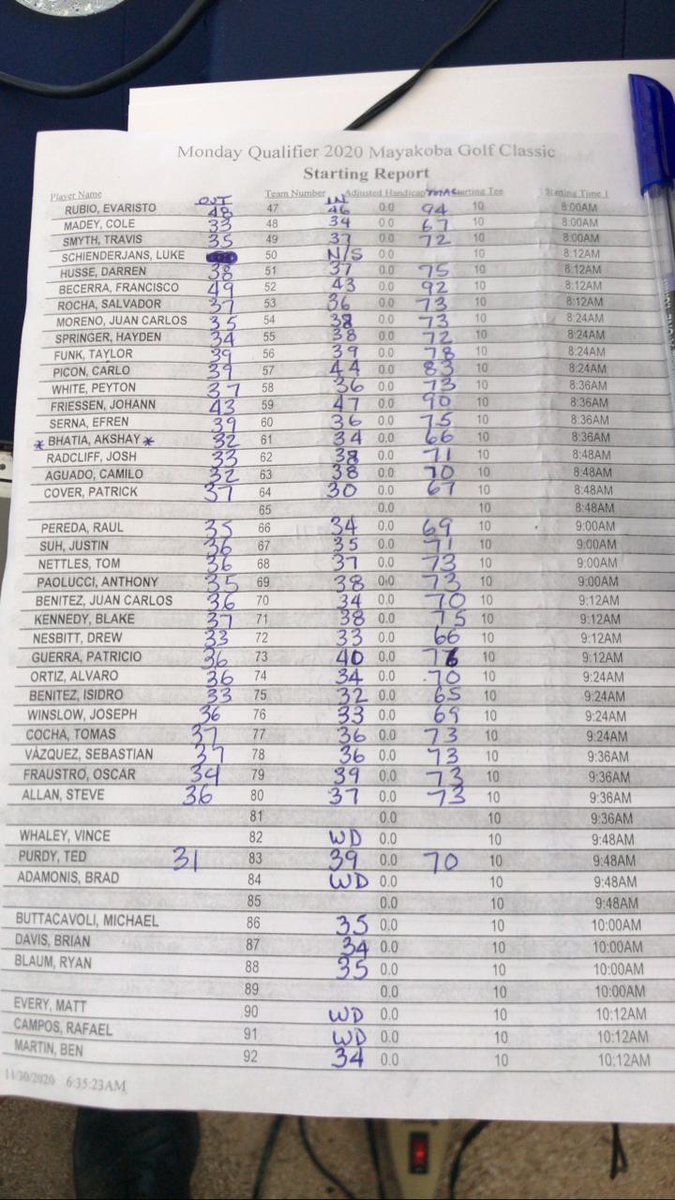 Monday Qualifier 2020 Mayakoba Golf Classic
Starting Report
Player Name OUT Team Number IN Adjusted Handicap TOTAL Starting Tee Starting Time 1
RUBIO, EVARISTO 48 47 46 0.0 94 10 8:00AM
MADEY, COLE 33 48 34 0.0 67 10 8:00AM
SMYTH, TRAVIS 35 49 37 0.0 72 10 8:00AM
SCHIENDERJANS, LUKE 50 N/S 0.0 10 8:12AM
HUSSE, DARREN 38 51 37 0.0 75 10 8:12AM
BECERRA, FRANCISCO 49 52 43 0.0 92 10 8:12AM
ROCHA, SALVADOR 37 53 36 0.0 73 10 8:12AM
MORENO, JUAN CARLOS 35 54 38 0.0 73 10 8:24AM
SPRINGER, HAYDEN 34 55 38 0.0 72 10 8:24AM
FUNK, TAYLOR 39 56 39 0.0 78 10 8:24AM
PICON, CARLO 39 57 44 0.0 83 10 8:24AM
WHITE, PEYTON 37 58 36 0.0 73 10 8:36AM
FRIESSEN, JOHANN 43 59 47 0.0 90 10 8:36AM
SERNA, EFREN 39 60 36 0.0 75 10 8:36AM
* BHATIA, AKSHAY * 32 61 34 0.0 66 10 8:36AM
RADCLIFF, JOSH 33 62 38 0.0 71 10 8:48AM
AGUADO, CAMILO 32 63 38 0.0 70 10 8:48AM
COVER, PATRICK 37 64 30 0.0 67 10 8:48AM
65 0.0 10 8:48AM
PEREDA, RAUL 35 66 34 0.0 69 10 9:00AM
SUH, JUSTIN 36 67 35 0.0 71 10 9:00AM
NETTLES, TOM 36 68 37 0.0 73 10 9:00AM
PAOLUCCI, ANTHONY 35 69 38 0.0 73 10 9:00AM
BENITEZ, JUAN CARLOS 36 70 34 0.0 70 10 9:12AM
KENNEDY, BLAKE 37 71 38 0.0 75 10 9:12AM
NESBITT, DREW 33 72 33 0.0 66 10 9:12AM
GUERRA, PATRICIO 36 73 40 0.0 76 10 9:12AM
ORTIZ, ALVARO 36 74 34 0.0 70 10 9:24AM
BENITEZ, ISIDRO 33 75 32 0.0 65 10 9:24AM
WINSLOW, JOSEPH 36 76 33 0.0 69 10 9:24AM
COCHA, TOMAS 37 77 36 0.0 73 10 9:24AM
VÁZQUEZ, SEBASTIAN 37 78 36 0.0 73 10 9:36AM
FRAUSTRO, OSCAR 34 79 39 0.0 73 10 9:36AM
ALLAN, STEVE 36 80 37 0.0 73 10 9:36AM
81 0.0 10 9:36AM
WHALEY, VINCE 82 WD 0.0 10 9:48AM
PURDY, TED 31 83 39 0.0 70 10 9:48AM
ADAMONIS, BRAD 84 WD 0.0 10 9:48AM
85 0.0 10 9:48AM
BUTTACAVOLI, MICHAEL 86 35 0.0 10 10:00AM
DAVIS, BRIAN 87 34 0.0 10 10:00AM
BLAUM, RYAN 88 35 0.0 10 10:00AM
89 0.0 10 10:00AM
EVERY, MATT 90 WD 0.0 10 10:12AM
CAMPOS, RAFAEL 91 WD 0.0 10 10:12AM
MARTIN, BEN 92 34 0.0 10 10:12AM
11/30/2020 6:35:23AM